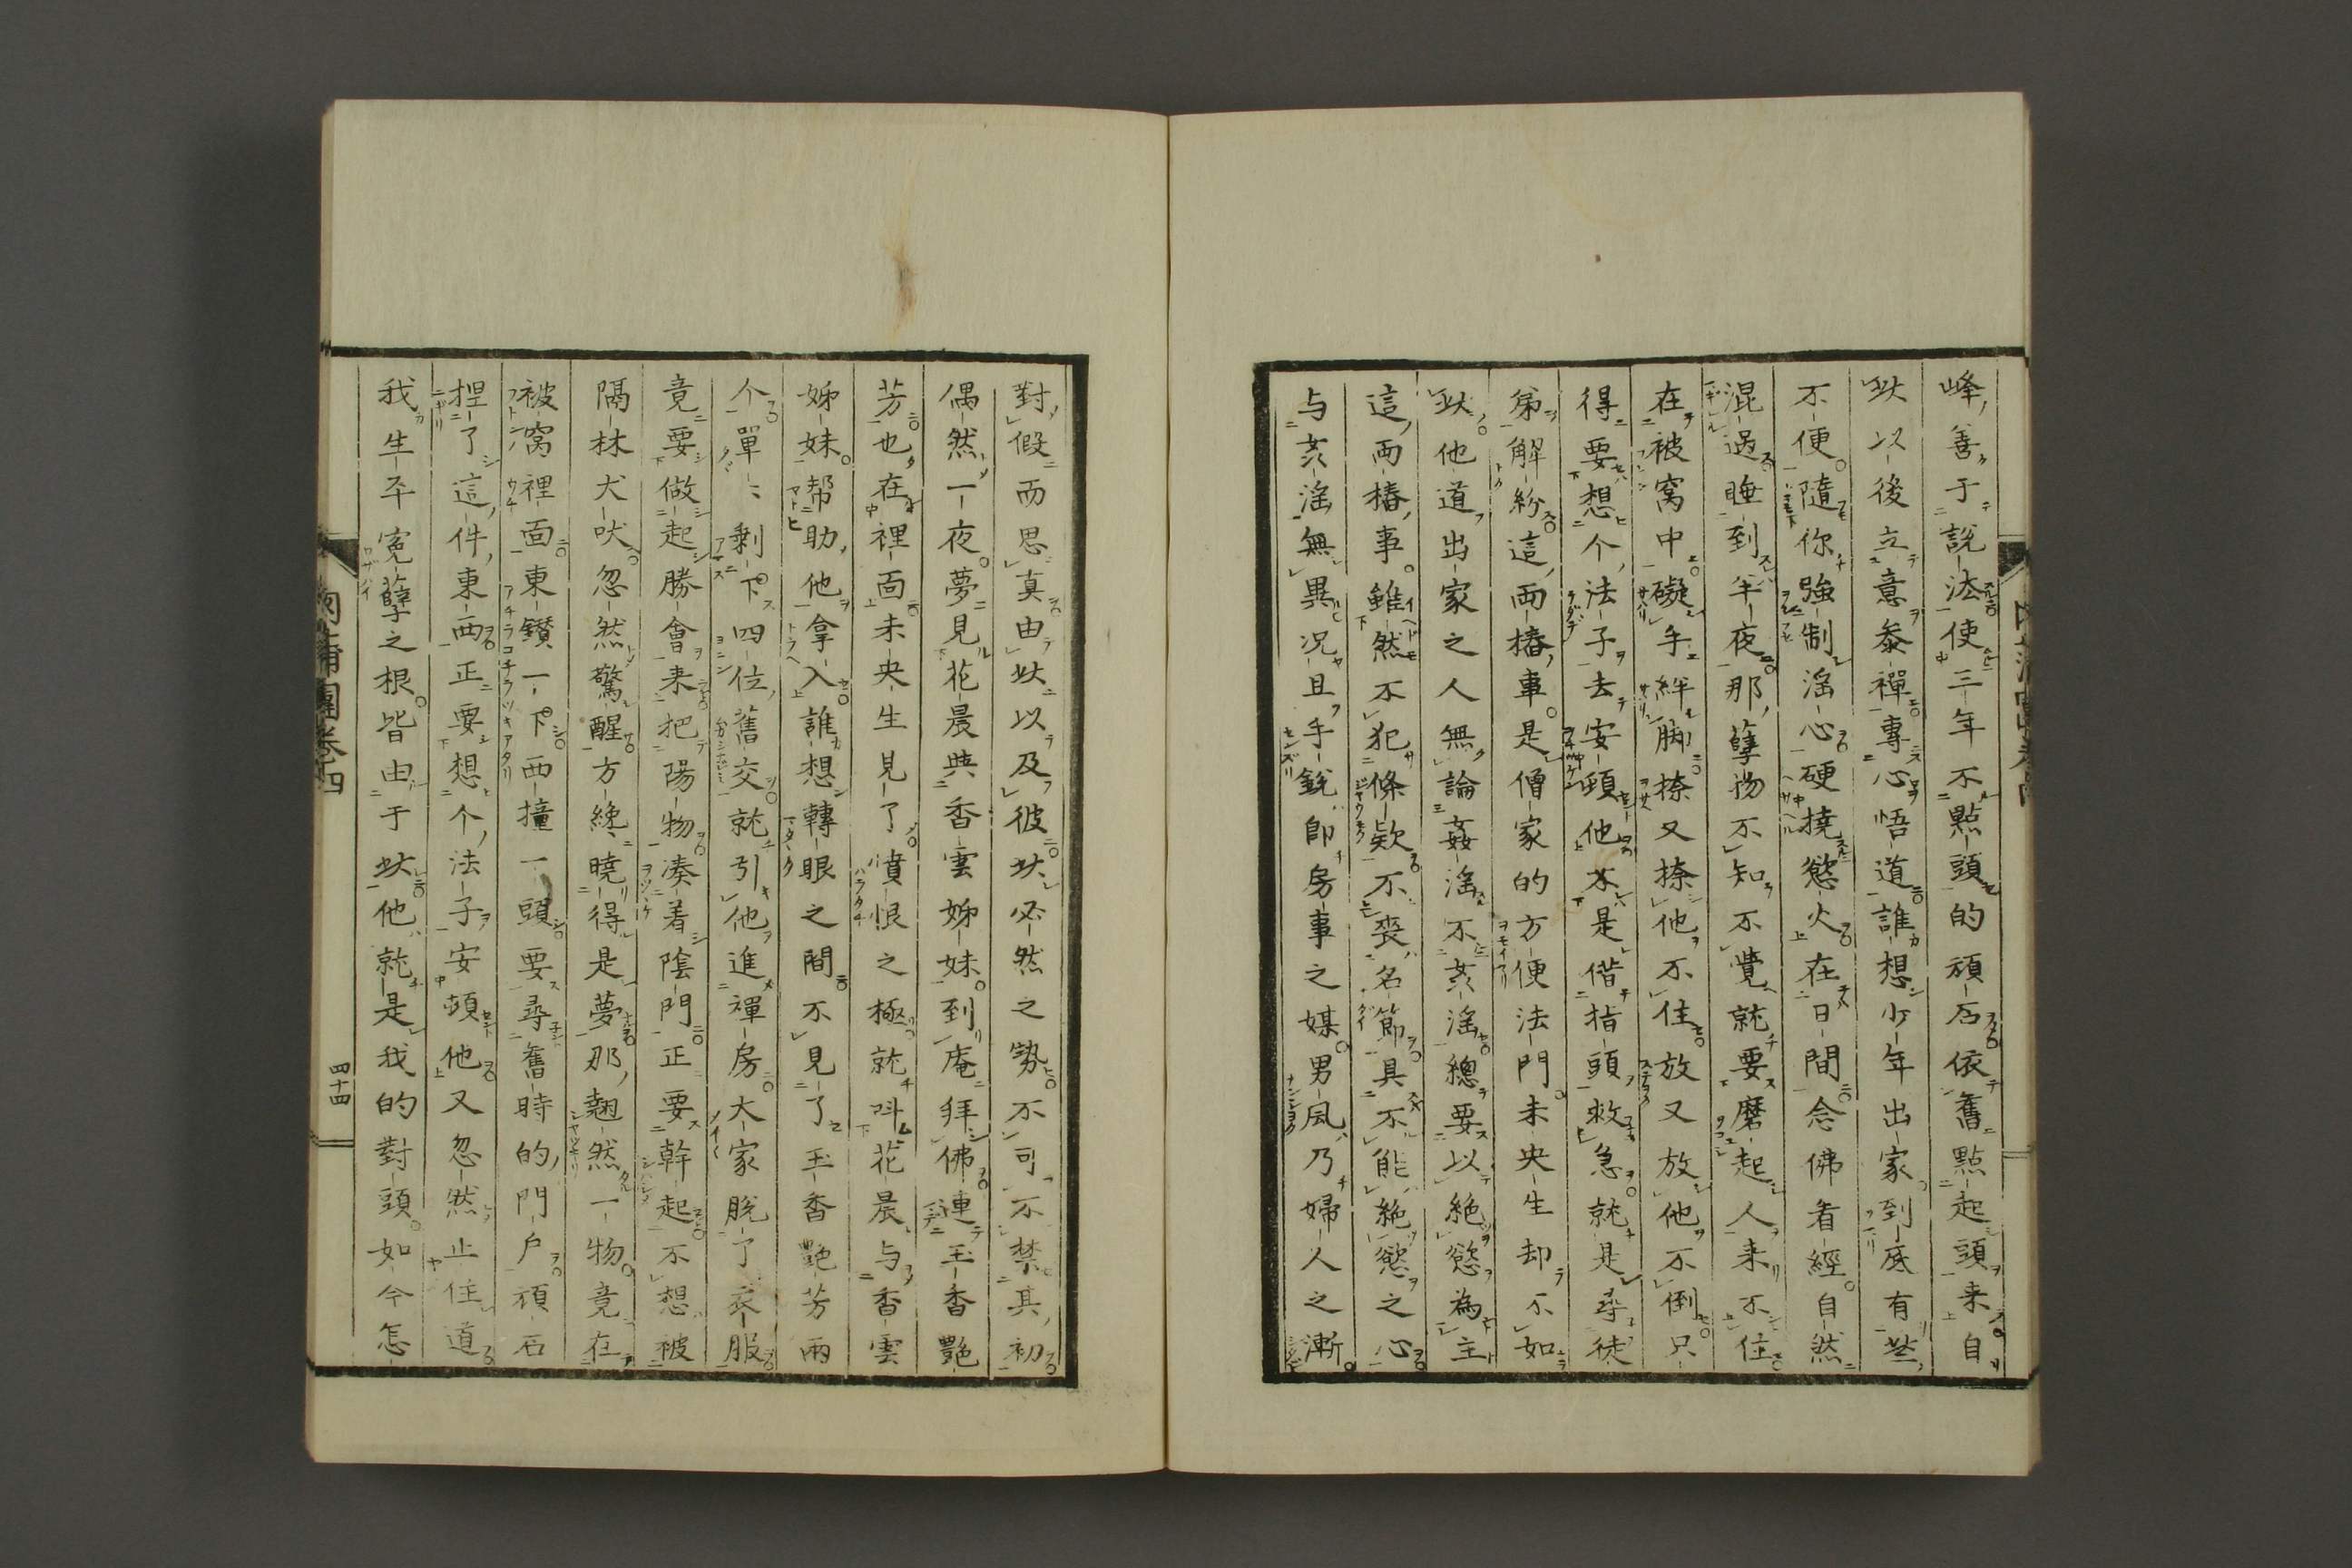 峰善于說法使三年不點頭的頑石依舊點起頭来自
此以後立意叅禪專心悟道誰想少年出家到底有些
不便隨你強制滛心硬撓慾火在日間念佛看經自然
混過睡到半夜那孽物不知不覺就要磨起人来不住
在被窩中礙手絆脚捺又捺他不住放又放他不倒只
得要想个法子去安頓他不是借指頭救急就是尋徒
弟解紛這兩樁事是僧家的方便法門未央生却不如
此他道出家之人無論姦滛不姦滛總要以絶慾為主
這兩樁事雖然不犯條款不喪名節具不能絶慾之心
与姦滛無異况且手銃卽房事之媒男風乃婦人之漸
對假而思真由此以及彼此必然之勢不可不禁其初
偶然一夜夢見花晨與香雲姊妹到庵拜佛連玉香艷
芳也在裡面未央生見了憤恨之極就呌花晨与香雲
姊妹帮助他拿入誰想轉眼之間不見了玉香艷芳兩
个單單剩下四位舊交就引他進禪房大家脫了衣服
竟要做起勝會来把陽物凑着陰門正要幹起不想被
隔林犬吠忽然驚醒方纔曉得是夢那翹然一物竟在
被窩裡面東鑚一下西撞一頭要尋舊時的門户頑石
捏了這件東西正要想个法子安頓他又忽然止住道
我生平寃孽之根皆由于此他就是我的對頭如今怎
肉蒲團卷四
四十四